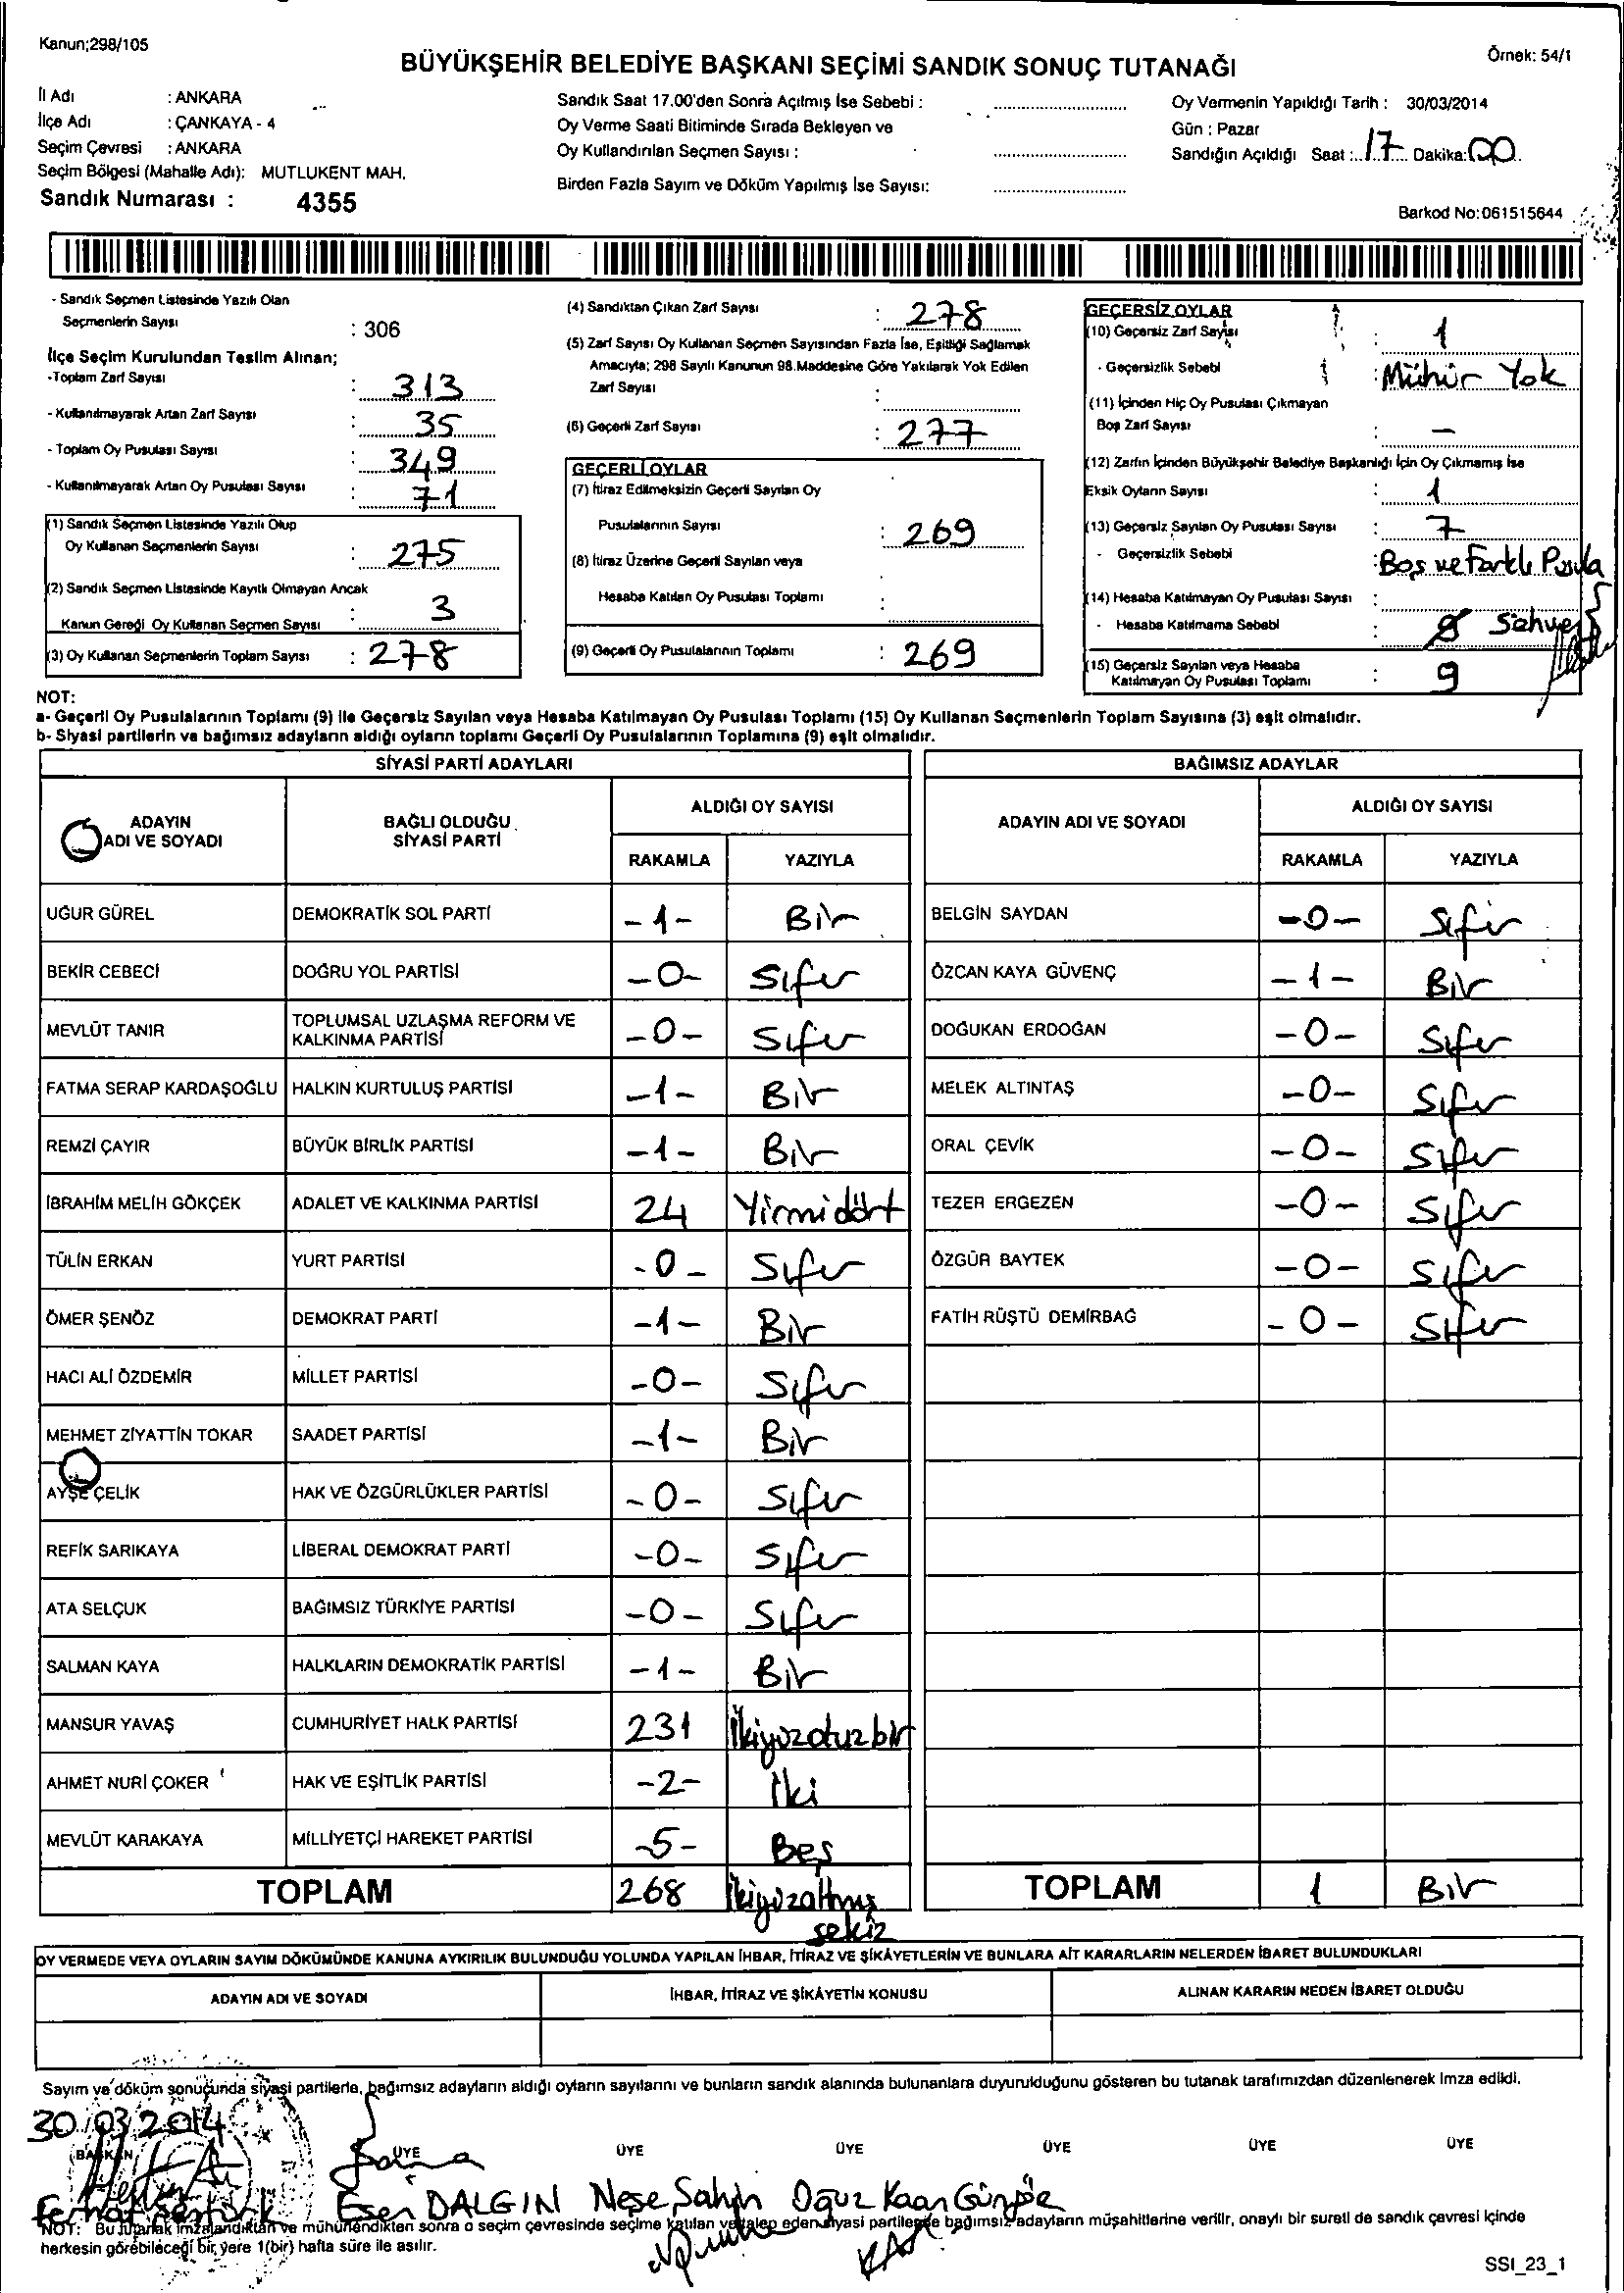 Kanun;298/105
Örnek: 54/1
BÜYÜKŞEHİR BELEDİYE BAŞKANI SEÇİMİ SANDIK SONUÇ TUTANAĞI
İl Adı : ANKARA
İlçe Adı : ÇANKAYA - 4
Seçim Çevresi : ANKARA
Seçim Bölgesi (Mahalle Adı): MUTLUKENT MAH.
Sandık Numarası : 4355
Sandık Saat 17.00'den Sonra Açılmış İse Sebebi :
Oy Verme Saati Bitiminde Sırada Bekleyen ve
Oy Kullandırılan Seçmen Sayısı :
Birden Fazla Sayım ve Döküm Yapılmış İse Sayısı:
Oy Vermenin Yapıldığı Tarih : 30/03/2014
Gün : Pazar
Sandığın Açıldığı Saat : 17 Dakika: 00
Barkod No:061515644
- Sandık Seçmen Listesinde Yazılı Olan
Seçmenlerin Sayısı : 306
İlçe Seçim Kurulundan Teslim Alınan;
-Toplam Zarf Sayısı : 313
- Kullanılmayarak Artan Zarf Sayısı : 35
- Toplam Oy Pusulası Sayısı : 349
- Kullanılmayarak Artan Oy Pusulası Sayısı : 71
(1) Sandık Seçmen Listesinde Yazılı Olup
Oy Kullanan Seçmenlerin Sayısı : 275
(2) Sandık Seçmen Listesinde Kayıtlı Olmayan Ancak
Kanun Gereği Oy Kullanan Seçmen Sayısı : 3
(3) Oy Kullanan Seçmenlerin Toplam Sayısı : 278
(4) Sandıktan Çıkan Zarf Sayısı : 278
(5) Zarf Sayısı Oy Kullanan Seçmen Sayısından Fazla İse, Eşitliği Sağlamak
Amacıyla; 298 Sayılı Kanunun 98.Maddesine Göre Yakılarak Yok Edilen
Zarf Sayısı :
(6) Geçerli Zarf Sayısı : 277
GEÇERLİ OYLAR
(7) İtiraz Edilmeksizin Geçerli Sayılan Oy
Pusulalarının Sayısı : 269
(8) İtiraz Üzerine Geçerli Sayılan veya
Hesaba Katılan Oy Pusulası Toplamı :
(9) Geçerli Oy Pusulalarının Toplamı : 269
GEÇERSİZ OYLAR
(10) Geçersiz Zarf Sayısı : 1
- Geçersizlik Sebebi : Mühür Yok
(11) İçinden Hiç Oy Pusulası Çıkmayan
Boş Zarf Sayısı : –
(12) Zarfın İçinden Büyükşehir Belediye Başkanlığı İçin Oy Çıkmamış İse
Eksik Oyların Sayısı : 1
(13) Geçersiz Sayılan Oy Pusulası Sayısı : 7
- Geçersizlik Sebebi : Boş ve Farklı Pusula
(14) Hesaba Katılmayan Oy Pusulası Sayısı :
- Hesaba Katılmama Sebebi :
(15) Geçersiz Sayılan veya Hesaba
Katılmayan Oy Pusulası Toplamı : 9
NOT:
a- Geçerli Oy Pusulalarının Toplamı (9) ile Geçersiz Sayılan veya Hesaba Katılmayan Oy Pusulası Toplamı (15) Oy Kullanan Seçmenlerin Toplam Sayısına (3) eşit olmalıdır.
b- Siyasi partilerin ve bağımsız adayların aldığı oyların toplamı Geçerli Oy Pusulalarının Toplamına (9) eşit olmalıdır.
SİYASİ PARTİ ADAYLARI
ADAYIN ADI VE SOYADI BAĞLI OLDUĞU SİYASİ PARTİ ALDIĞI OY SAYISI
RAKAMLA YAZIYLA
UĞUR GÜREL DEMOKRATİK SOL PARTİ -1- Bir
BEKİR CEBECİ DOĞRU YOL PARTİSİ -0- Sıfır
MEVLÜT TANIR TOPLUMSAL UZLAŞMA REFORM VE KALKINMA PARTİSİ -0- Sıfır
FATMA SERAP KARDAŞOĞLU HALKIN KURTULUŞ PARTİSİ -1- Bir
REMZİ ÇAYIR BÜYÜK BİRLİK PARTİSİ -1- Bir
İBRAHİM MELİH GÖKÇEK ADALET VE KALKINMA PARTİSİ 24 Yirmidört
TÜLİN ERKAN YURT PARTİSİ -0- Sıfır
ÖMER ŞENÖZ DEMOKRAT PARTİ -1- Bir
HACI ALİ ÖZDEMİR MİLLET PARTİSİ -0- Sıfır
MEHMET ZİYATTİN TOKAR SAADET PARTİSİ -1- Bir
AYŞE ÇELİK HAK VE ÖZGÜRLÜKLER PARTİSİ -0- Sıfır
REFİK SARIKAYA LİBERAL DEMOKRAT PARTİ -0- Sıfır
ATA SELÇUK BAĞIMSIZ TÜRKİYE PARTİSİ -0- Sıfır
SALMAN KAYA HALKLARIN DEMOKRATİK PARTİSİ -1- Bir
MANSUR YAVAŞ CUMHURİYET HALK PARTİSİ 231 İkiyüzotuzbir
AHMET NURİ ÇOKER HAK VE EŞİTLİK PARTİSİ -2- İki
MEVLÜT KARAKAYA MİLLİYETÇİ HAREKET PARTİSİ -5- Beş
TOPLAM 268 İkiyüzaltmış sekiz
BAĞIMSIZ ADAYLAR
ADAYIN ADI VE SOYADI ALDIĞI OY SAYISI
RAKAMLA YAZIYLA
BELGİN SAYDAN -0- Sıfır
ÖZCAN KAYA GÜVENÇ -1- Bir
DOĞUKAN ERDOĞAN -0- Sıfır
MELEK ALTINTAŞ -0- Sıfır
ORAL ÇEVİK -0- Sıfır
TEZER ERGEZEN -0- Sıfır
ÖZGÜR BAYTEK -0- Sıfır
FATİH RÜŞTÜ DEMİRBAĞ -0- Sıfır
TOPLAM 1 Bir
OY VERMEDE VEYA OYLARIN SAYIM DÖKÜMÜNDE KANUNA AYKIRILIK BULUNDUĞU YOLUNDA YAPILAN İHBAR, İTİRAZ VE ŞİKAYETLERİN VE BUNLARA AİT KARARLARIN NELERDEN İBARET BULUNDUKLARI
ADAYIN ADI VE SOYADI İHBAR, İTİRAZ VE ŞİKAYETİN KONUSU ALINAN KARARIN NEDEN İBARET OLDUĞU
Sayım ve döküm sonucunda siyasi partilerle, bağımsız adayların aldığı oyların sayılarını ve bunların sandık alanında bulunanlara duyurulduğunu gösteren bu tutanak tarafımızdan düzenlenerek imza edildi.
30/03/2014
BAŞKAN ÜYE ÜYE ÜYE ÜYE ÜYE ÜYE
Eser DALGIN Neşe Şahin Oğuz Kaan
NOT: Bu tutanak imzalandıktan ve mühürlendikten sonra o seçim çevresinde seçime katılan ve talep eden siyasi partilerle bağımsız adayların müşahitlerine verilir, onaylı bir sureti de sandık çevresi içinde
herkesin görebileceği bir yere 1(bir) hafta süre ile asılır.
SSI_23_1